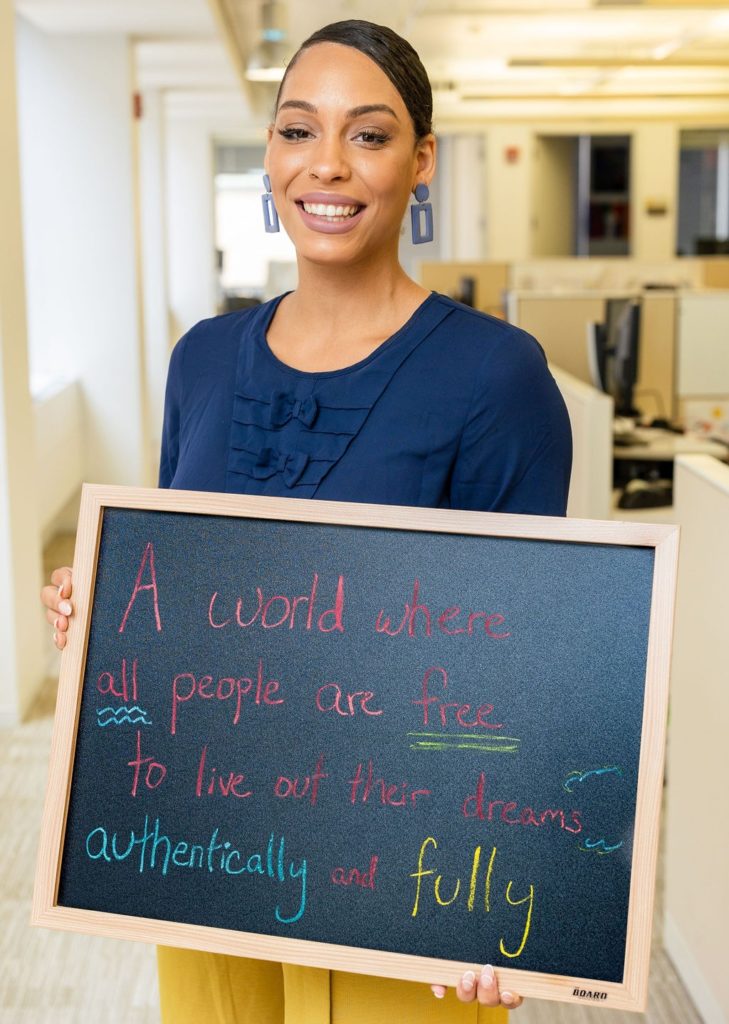 A world where
all people are free
to live out their dreams
authentically and fully
BOARD